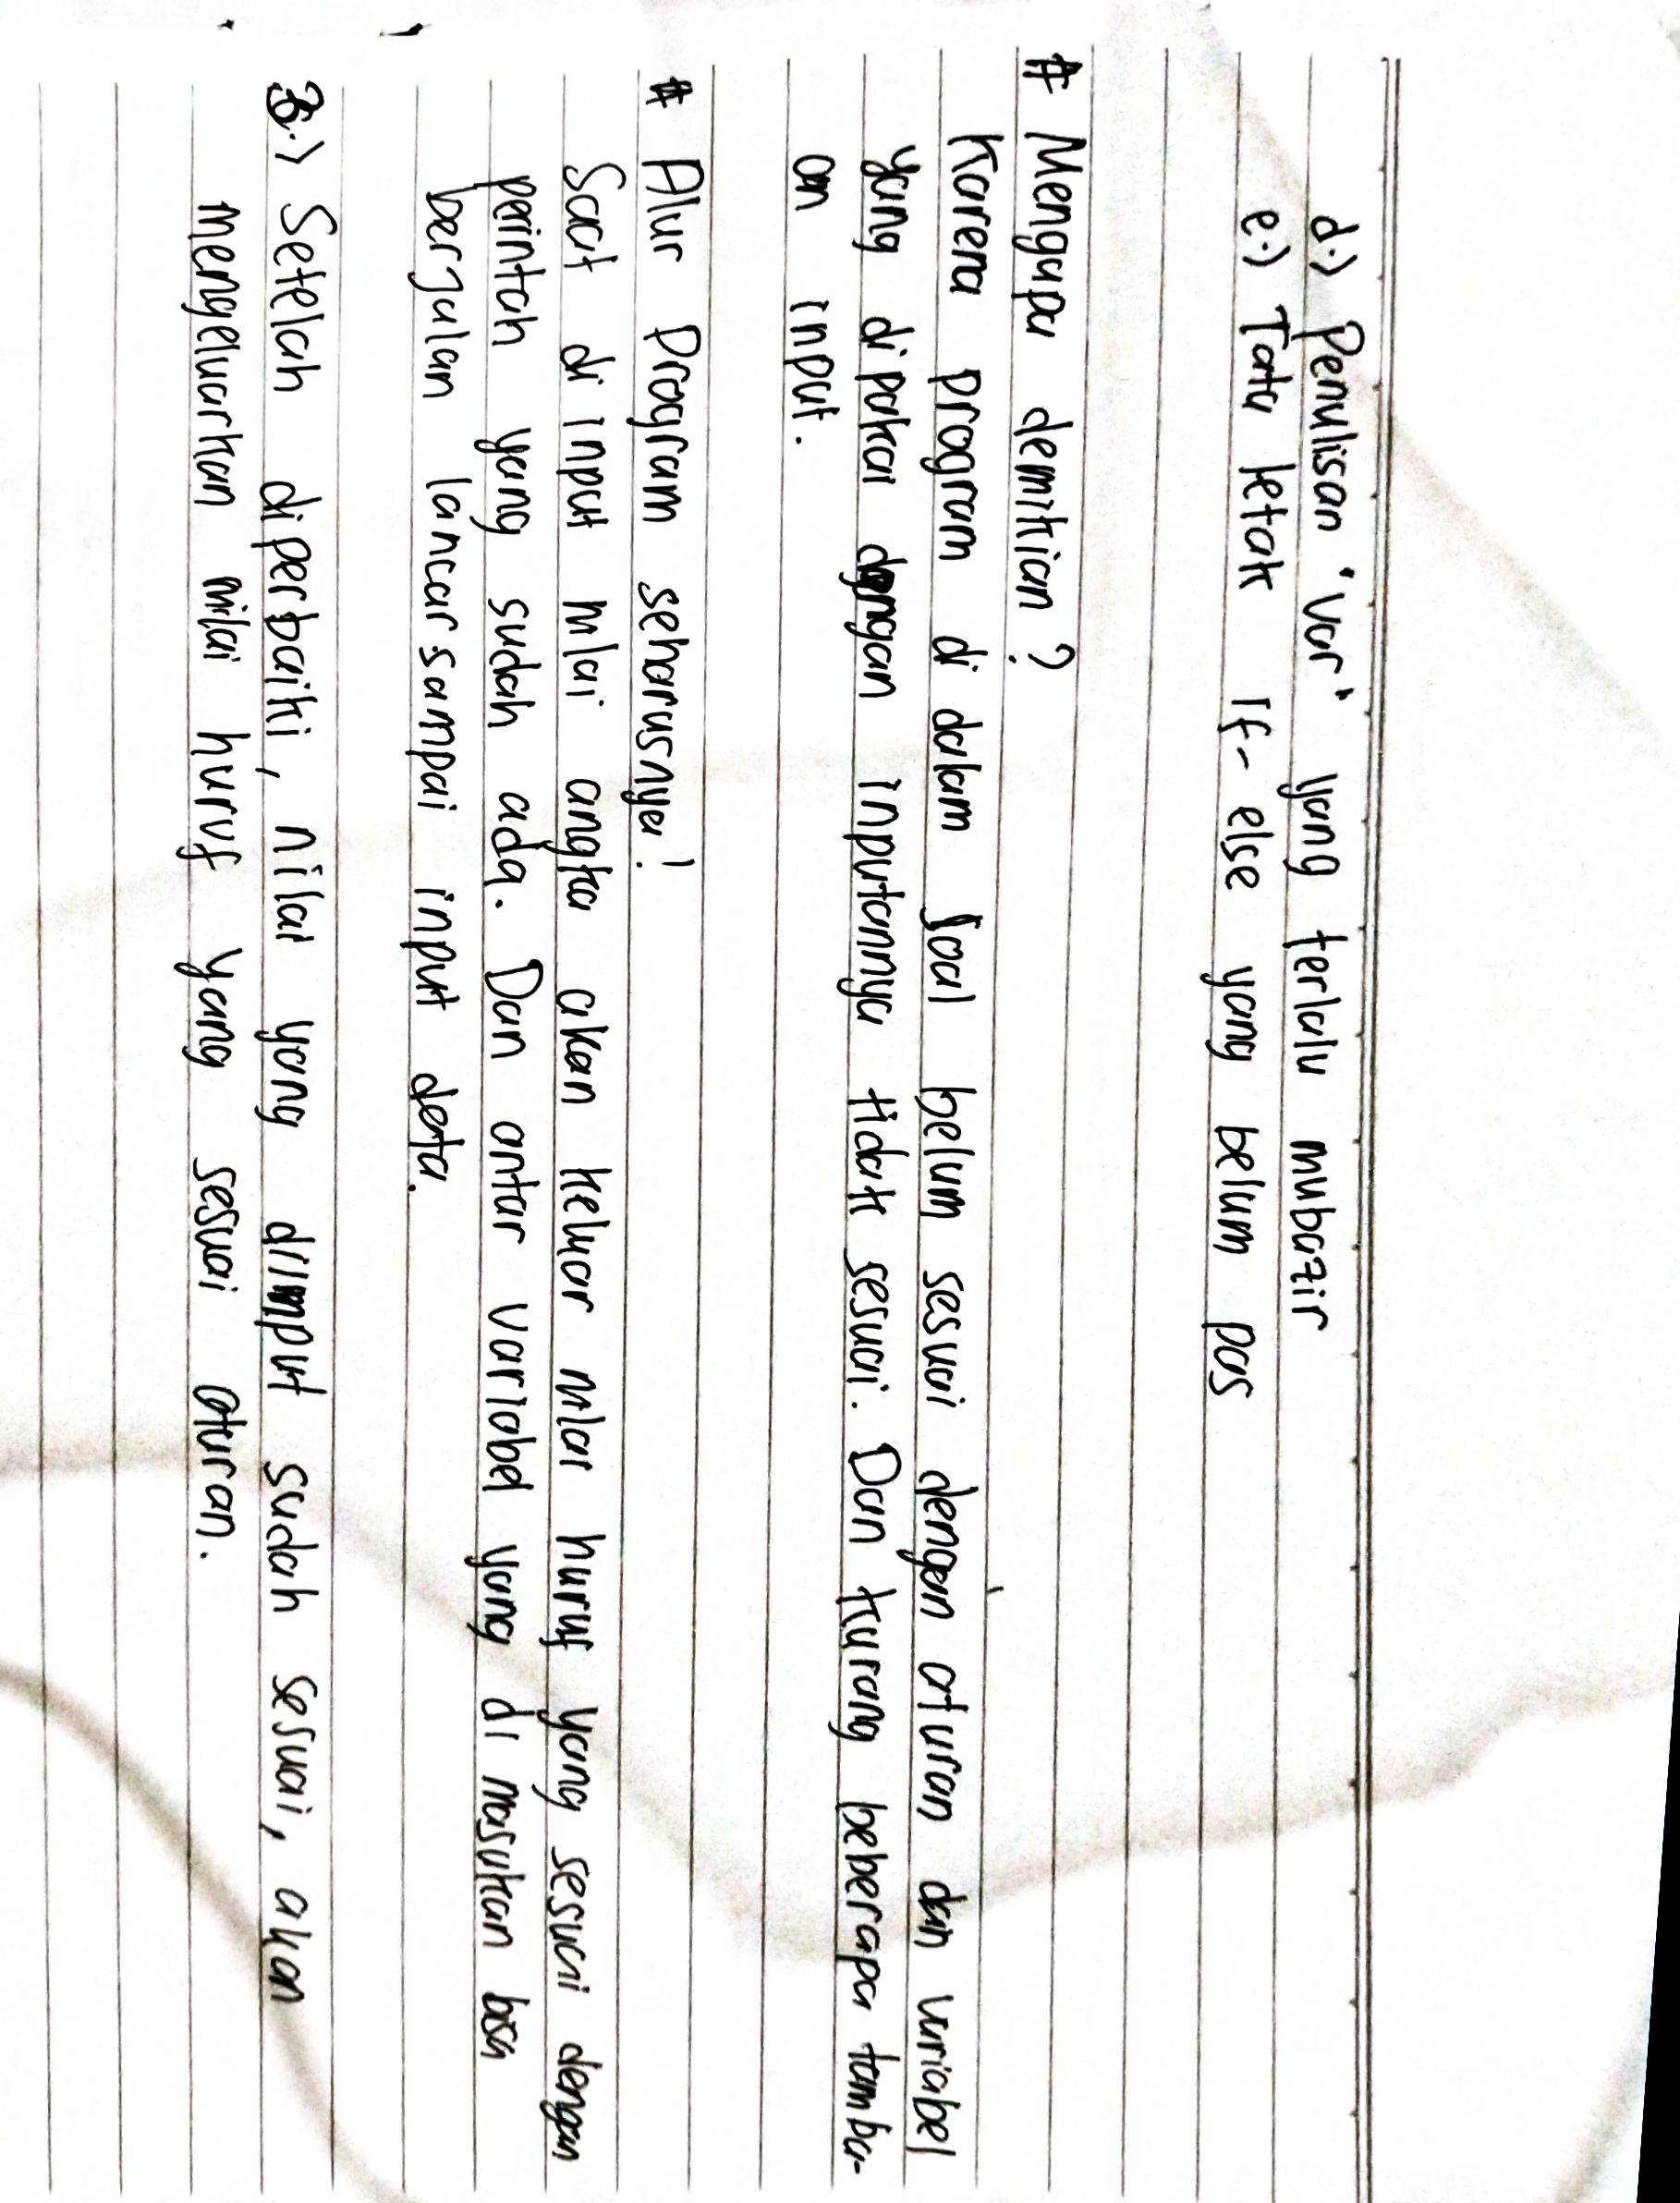 d.) Penulisan 'Var' yang terlalu mubazir
e.) Tata letak If- else yang belum pas
# Mengapa demikian ?
Karena program di dalam soal belum sesuai dengan aturan dan variabel
yang di pakai dengan inputannya tidak sesuai. Dan kurang beberapa tamba-
an input.
# Alur Program seharusnya!
Saat di input nilai angka akan keluar nilai huruf yang sesuai dengan
perintah yang sudah ada. Dan antar variabel yang di masukan bisa
berjalan lancar sampai input data.
3.) Setelah diperbaiki, nilai yang diinput sudah sesuai, akan
mengeluarkan nilai huruf yang sesuai aturan.